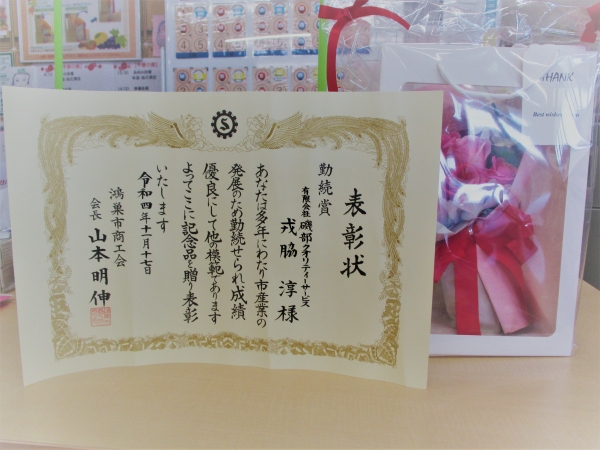 表彰状
勤続賞
有限会社 磯部クオリティーサービス
戎脇 淳 様
あなたは多年にわたり市産業の
発展のため勤続せられ成績
優良にして他の模範であります
よってここに記念品を贈り表彰
いたします
令和四年十一月十七日
鴻巣市商工会
会長 山本明伸
S
THANK
Best wishes